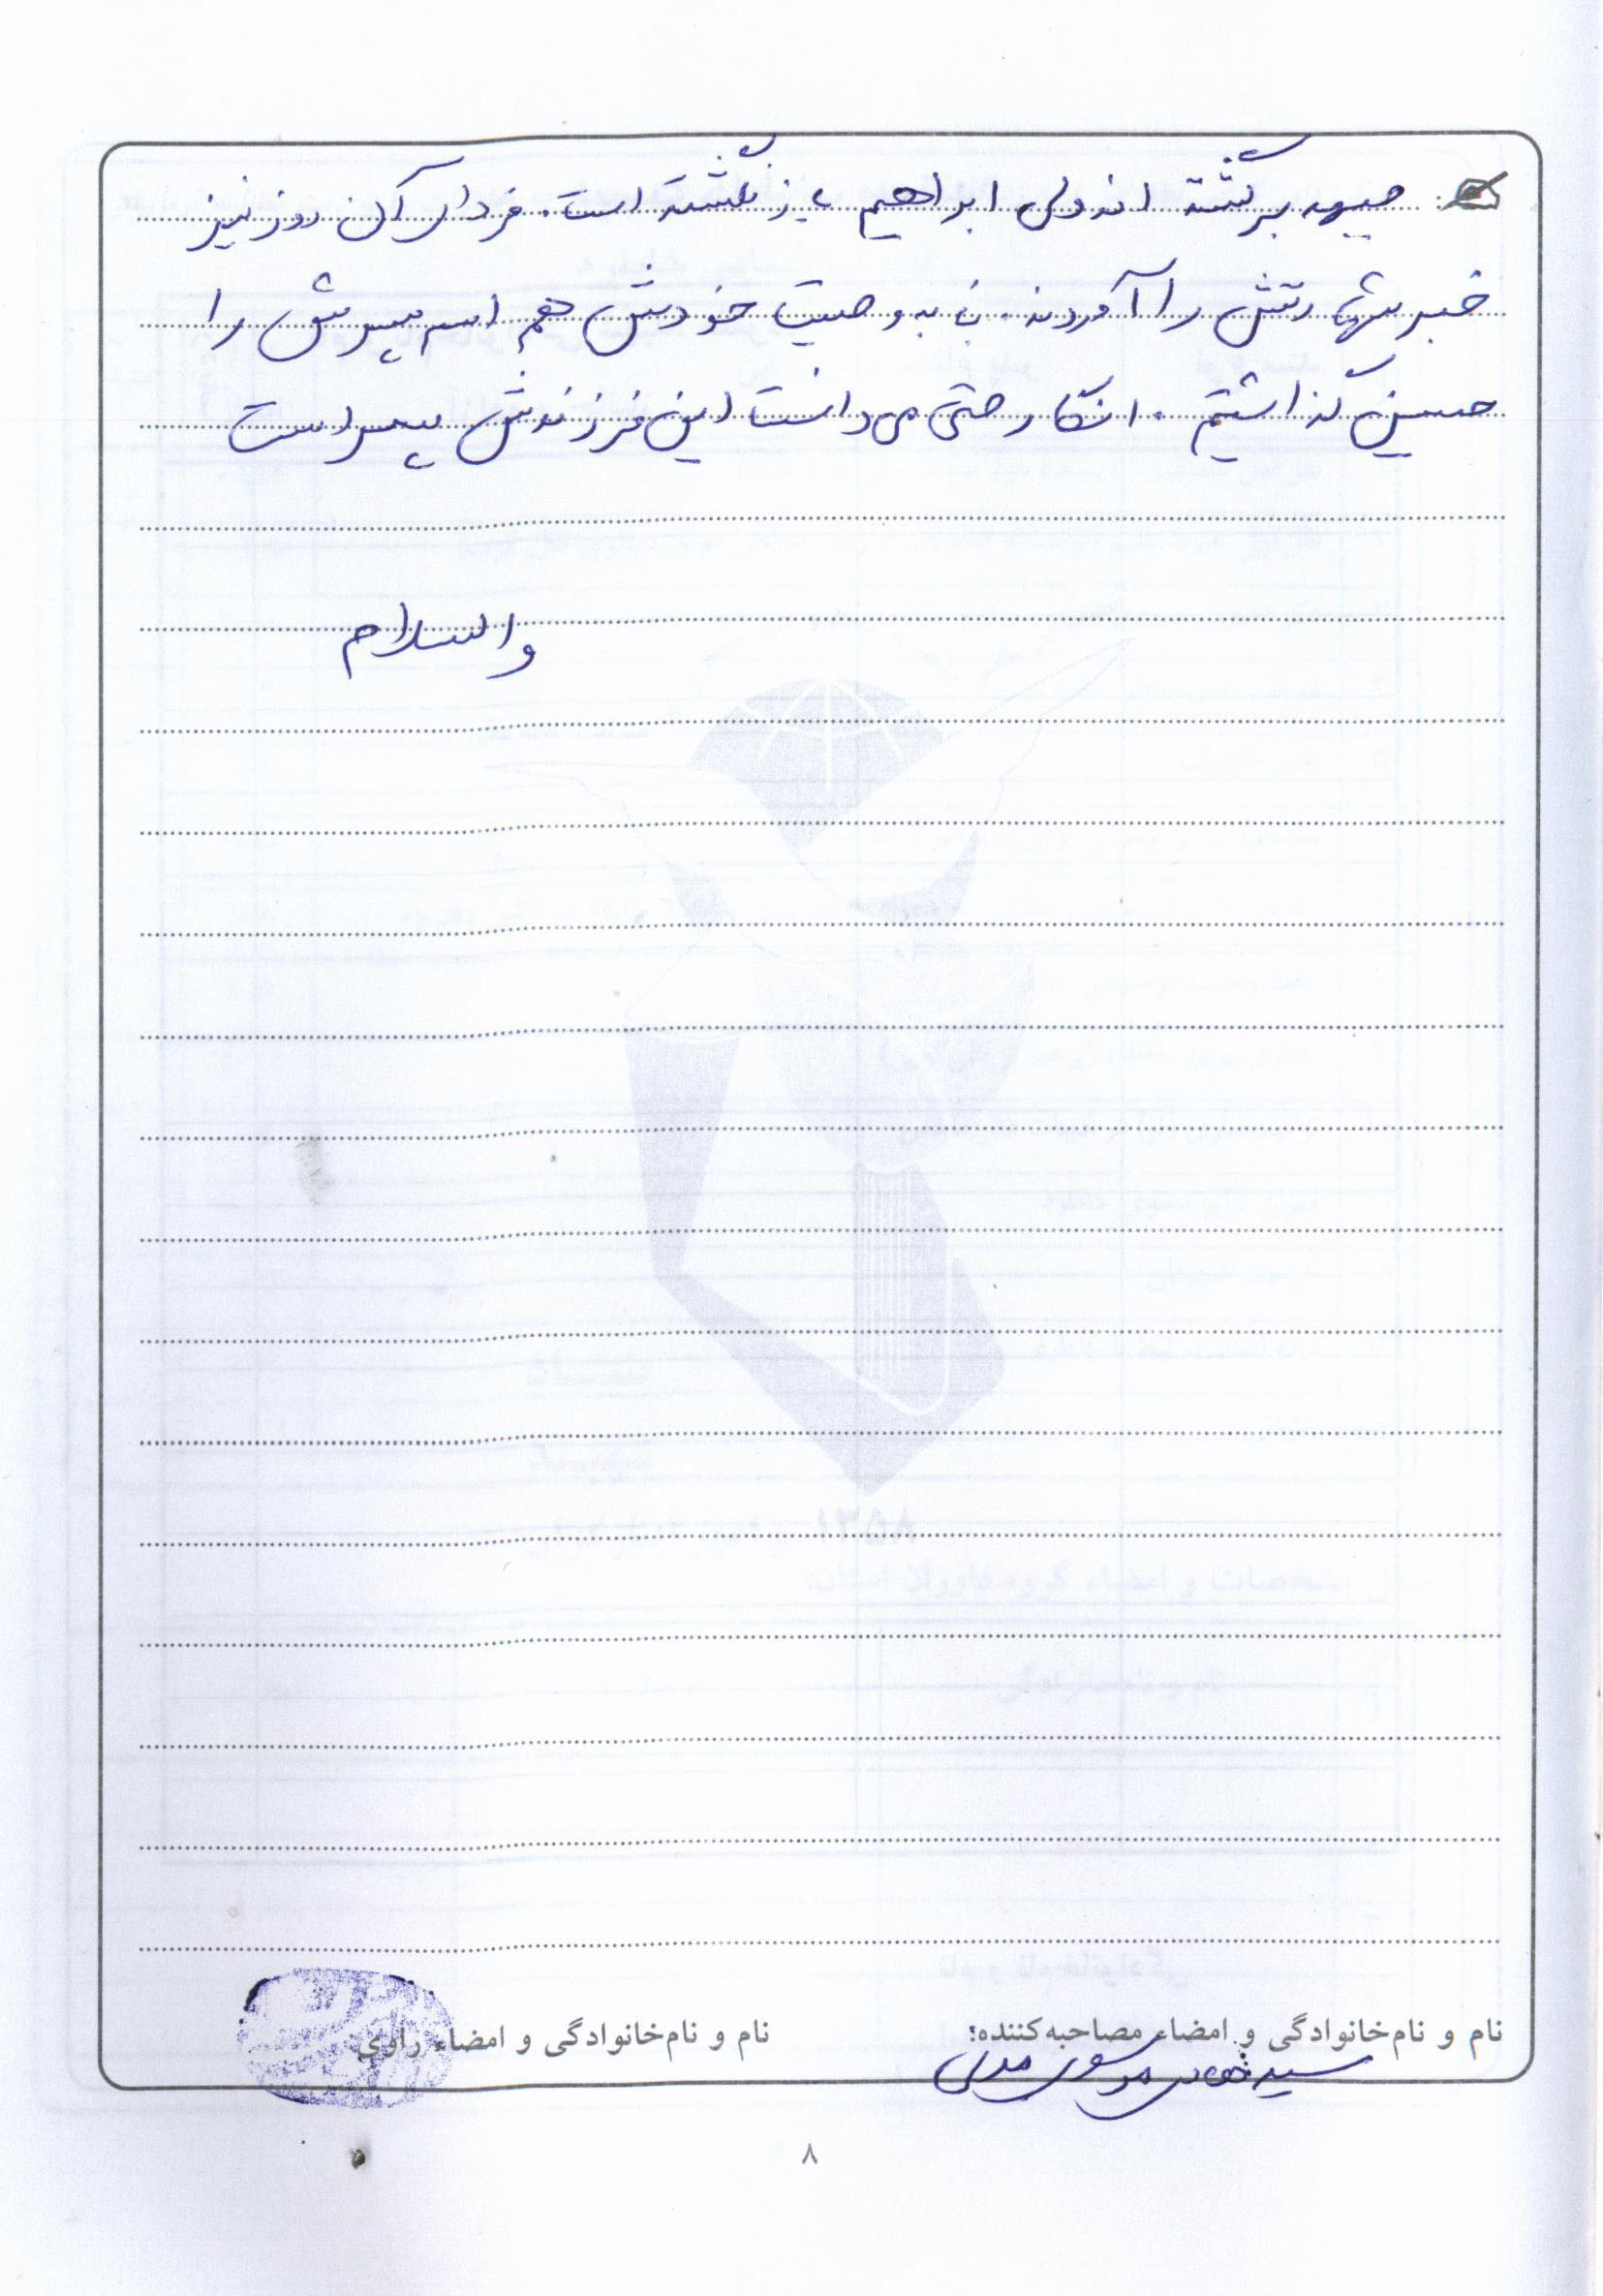 جبهه برگشته اند ولی ابراهیم بازنگشته است. فردای آن روز نیز
خبر شهادتش را آوردند. بنا به وصیت خودش هم اسم پسرش را
حسین گذاشتیم. انگار حتی می دانست این فرزندش پسر است
والسلام
نام و نام‌خانوادگی و امضاء مصاحبه‌کننده:
نام و نام‌خانوادگی و امضاء راوی:
سید موسوی
۸